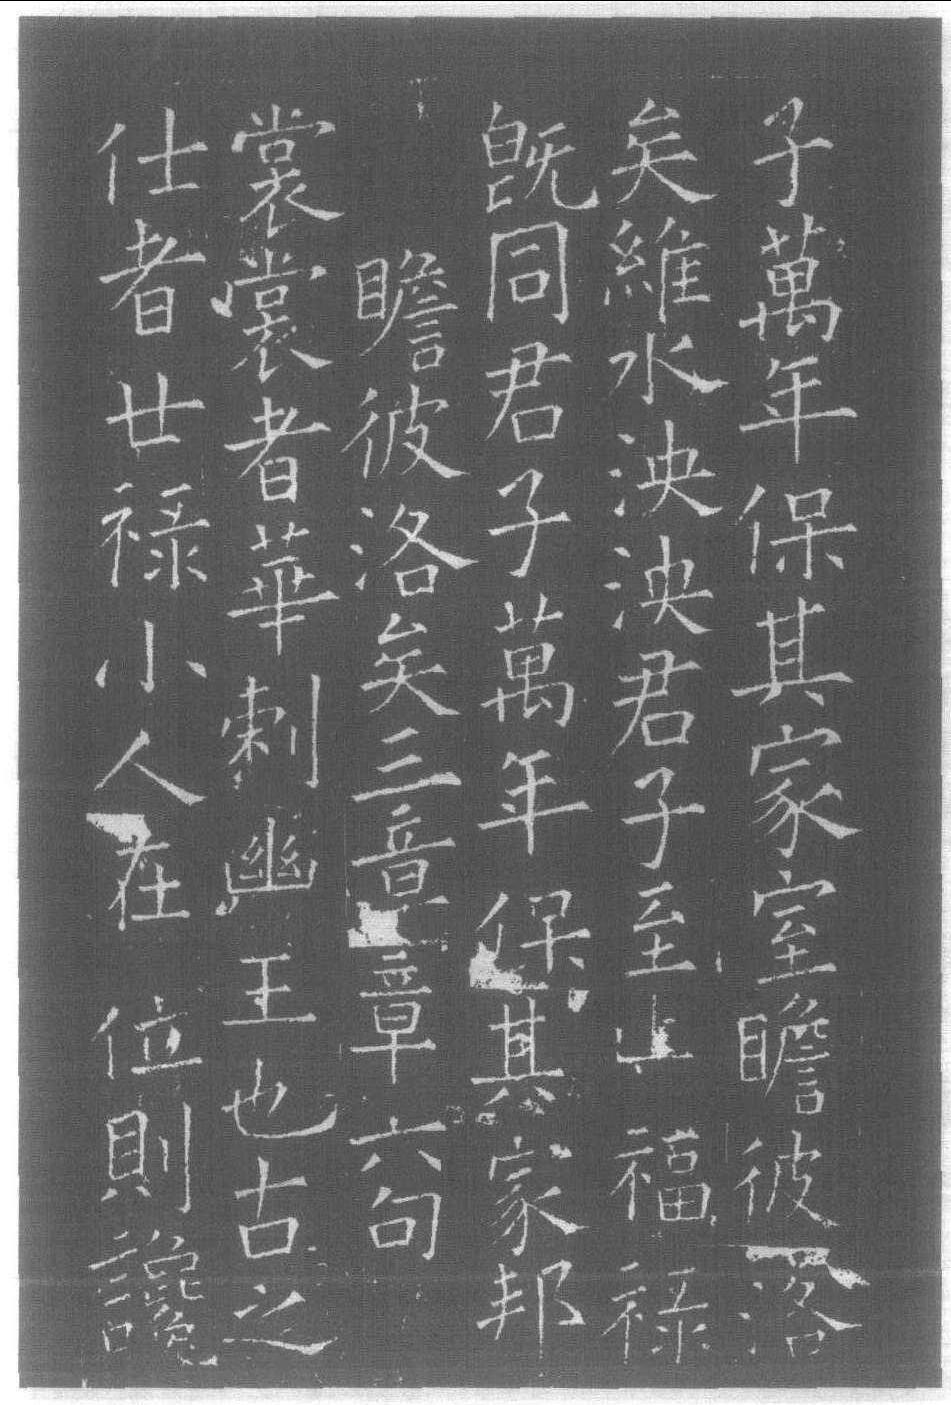 子萬年保其家室瞻彼洛
矣維水泱泱君子至止福祿
既同君子萬年保其家邦
瞻彼洛矣三章章六句
裳裳者華刺幽王也古之
仕者廿祿小人在位則讒